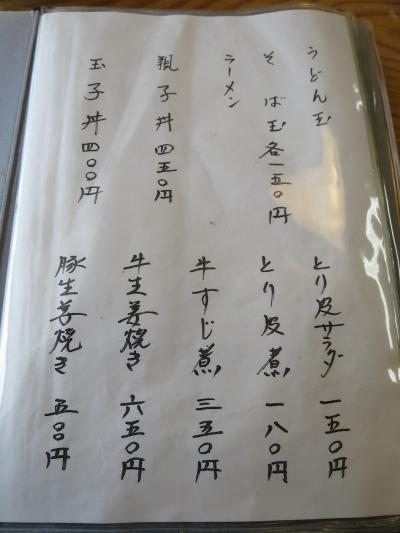 うどん玉
そば玉各一五〇円
ラーメン
親子丼四五〇円
玉子丼四〇〇円
とり皮サラダー一五〇円
とり皮煮一八〇円
牛すじ煮三五〇円
牛生姜焼き六五〇円
豚生姜焼き五〇〇円